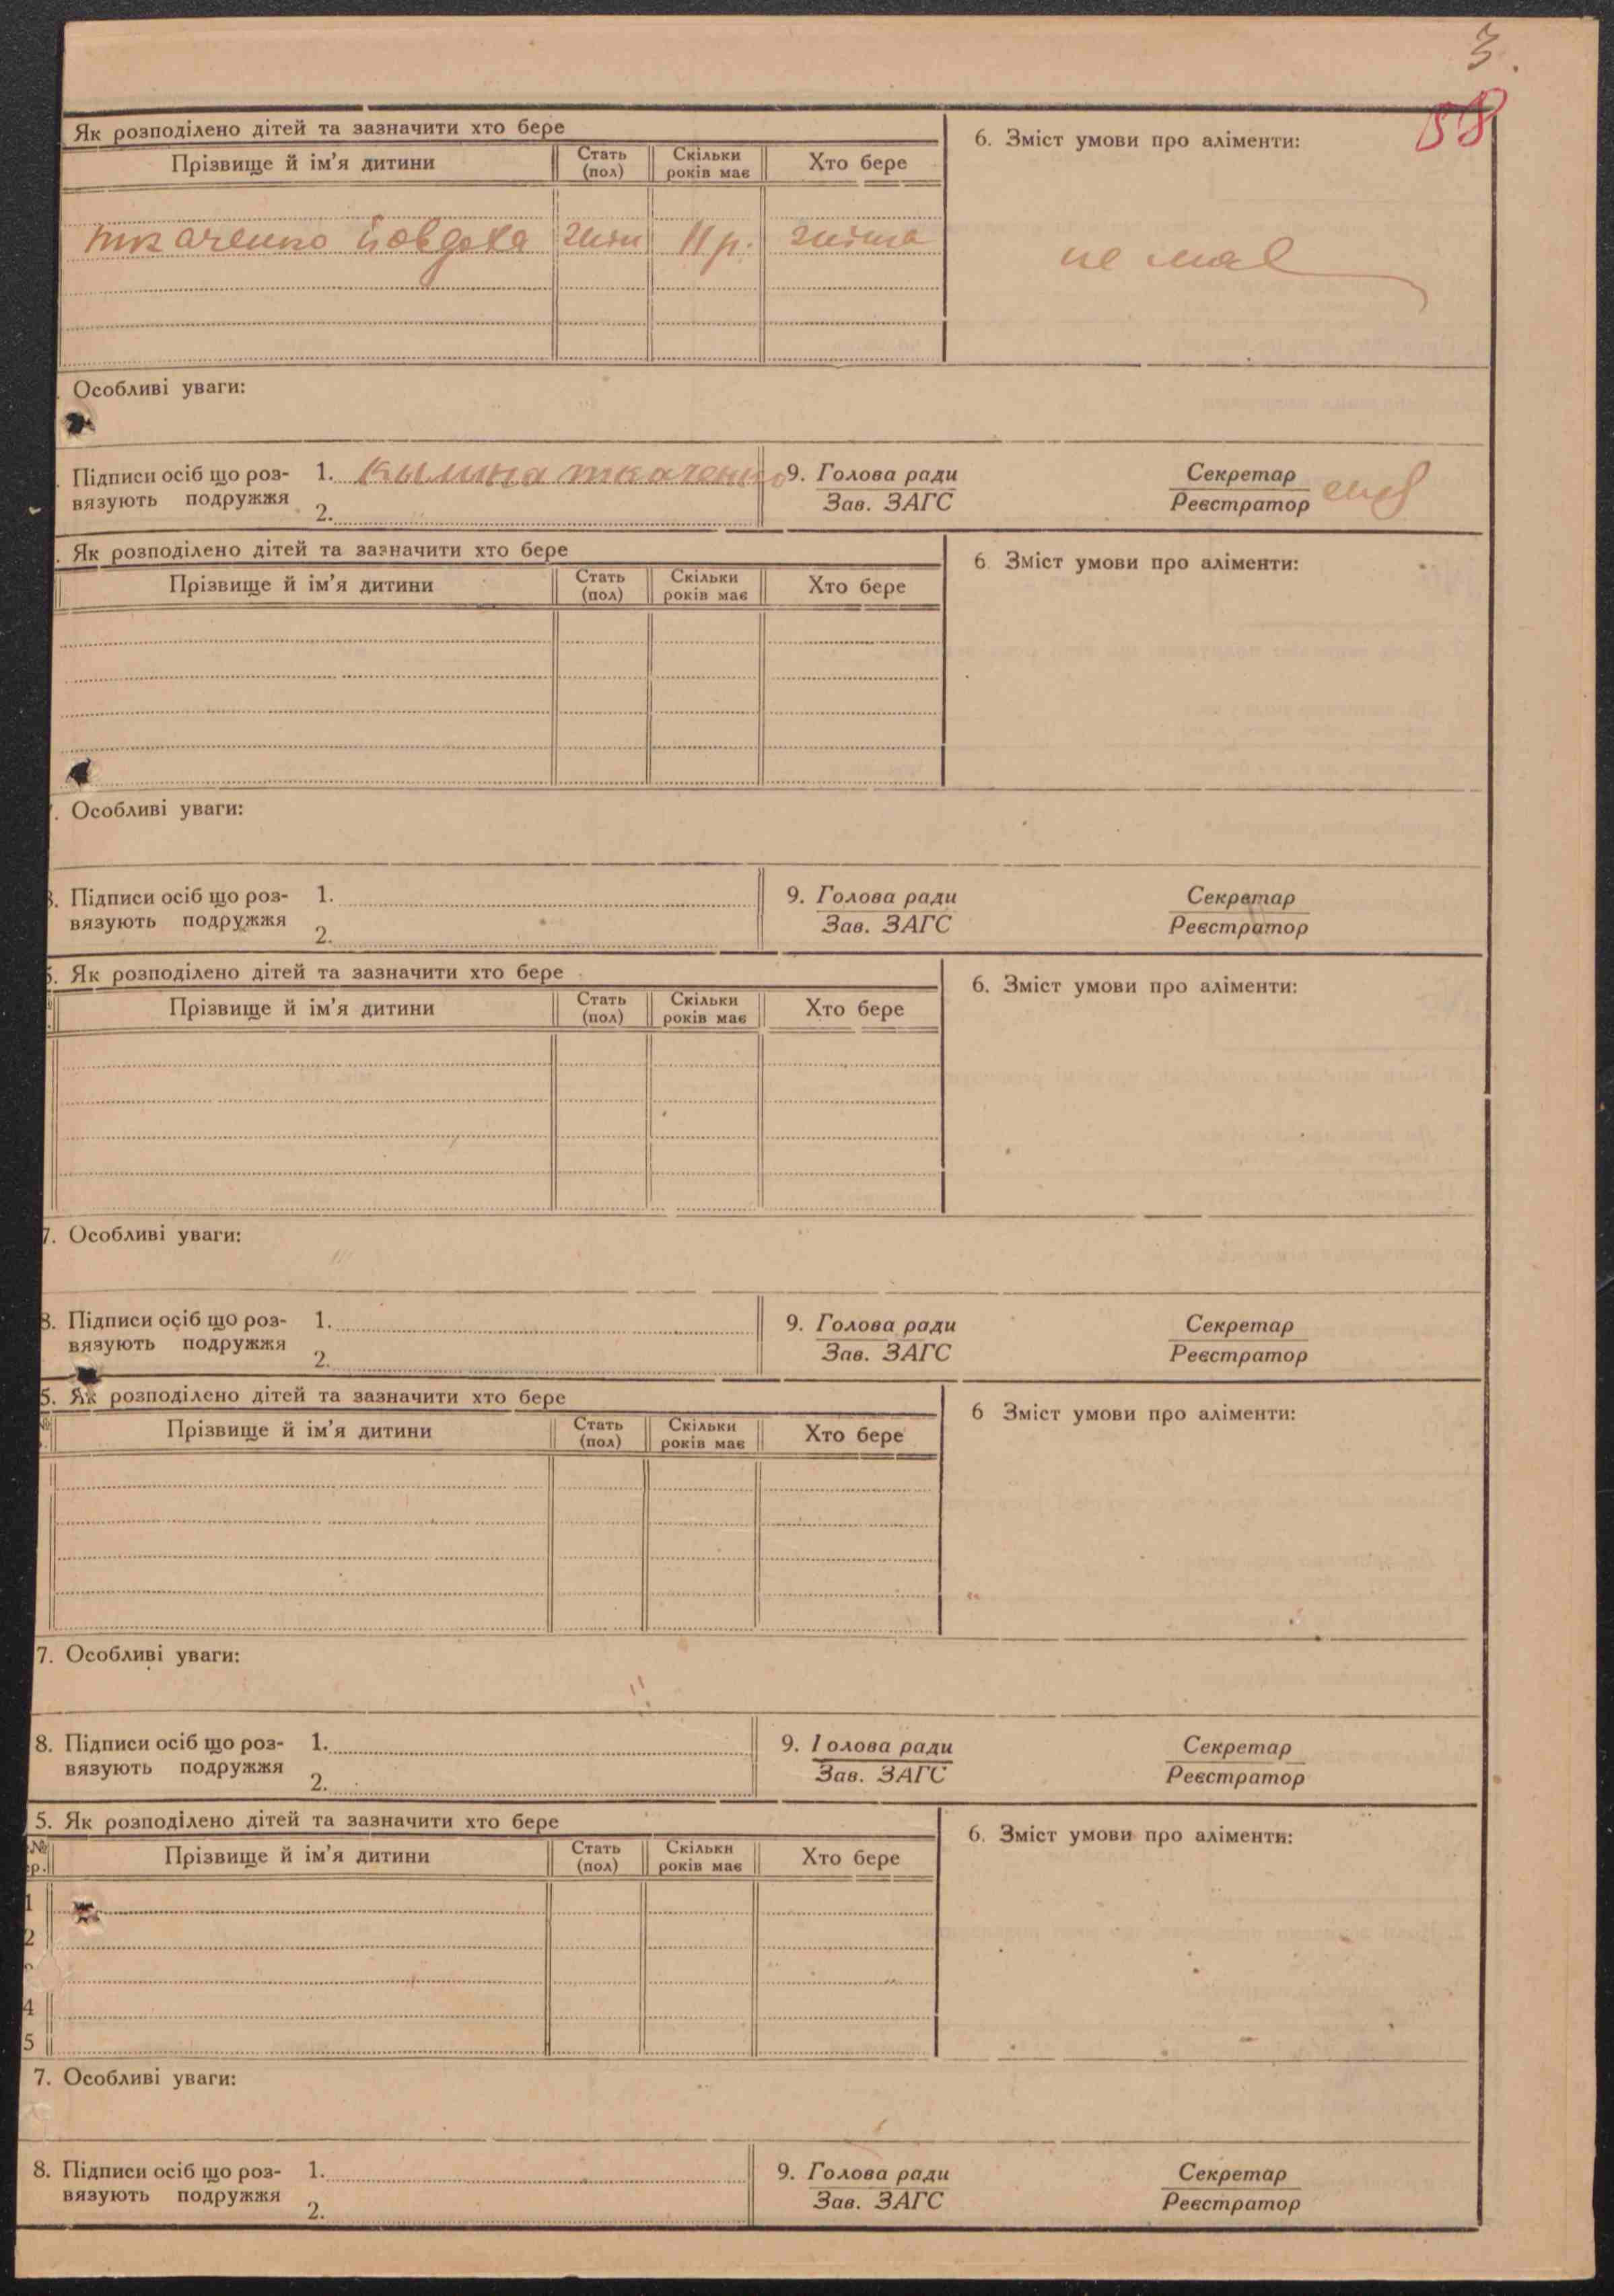 3.
58
Як розподілено дітей та зазначити хто бере
Прізвище й ім'я дитини
Стать (пол)
Скільки років має
Хто бере
6. Зміст умови про аліменти:
ткаченко йовдоха
жін
11 р.
не має
Особливі уваги:
Підписи осіб що роз-
вязують подружжя
1. Кылына ткаченко
2.
9. Голова ради
Зав. ЗАГС
Секретар
Реєстратор
. Як розподілено дітей та зазначити хто бере
Прізвище й ім'я дитини
Стать (пол)
Скільки років має
Хто бере
6 Зміст умови про аліменти:
. Особливі уваги:
Підписи осіб що роз-
вязують подружжя
1.
2.
9. Голова ради
Зав. ЗАГС
Секретар
Реєстратор
5. Як розподілено дітей та зазначити хто бере
Прізвище й ім'я дитини
Стать (пол)
Скільки років має
Хто бере
6. Зміст умови про аліменти:
7. Особливі уваги:
8. Підписи осіб що роз-
вязують подружжя
1.
2.
9. Голова ради
Зав. ЗАГС
Секретар
Реєстратор
5. Як розподілено дітей та зазначити хто бере
№
Прізвище й ім'я дитини
Стать (пол)
Скільки років має
Хто бере
6 Зміст умови про аліменти:
7. Особливі уваги:
8. Підписи осіб що роз-
вязують подружжя
1.
2.
9. Голова ради
Зав. ЗАГС
Секретар
Реєстратор
5. Як розподілено дітей та зазначити хто бере
№
р.
Прізвище й ім'я дитини
Стать (пол)
Скільки років має
Хто бере
6. Зміст умови про аліменти:
1
2
4
5
7. Особливі уваги:
8. Підписи осіб що роз-
вязують подружжя
1.
2.
9. Голова ради
Зав. ЗАГС
Секретар
Реєстратор